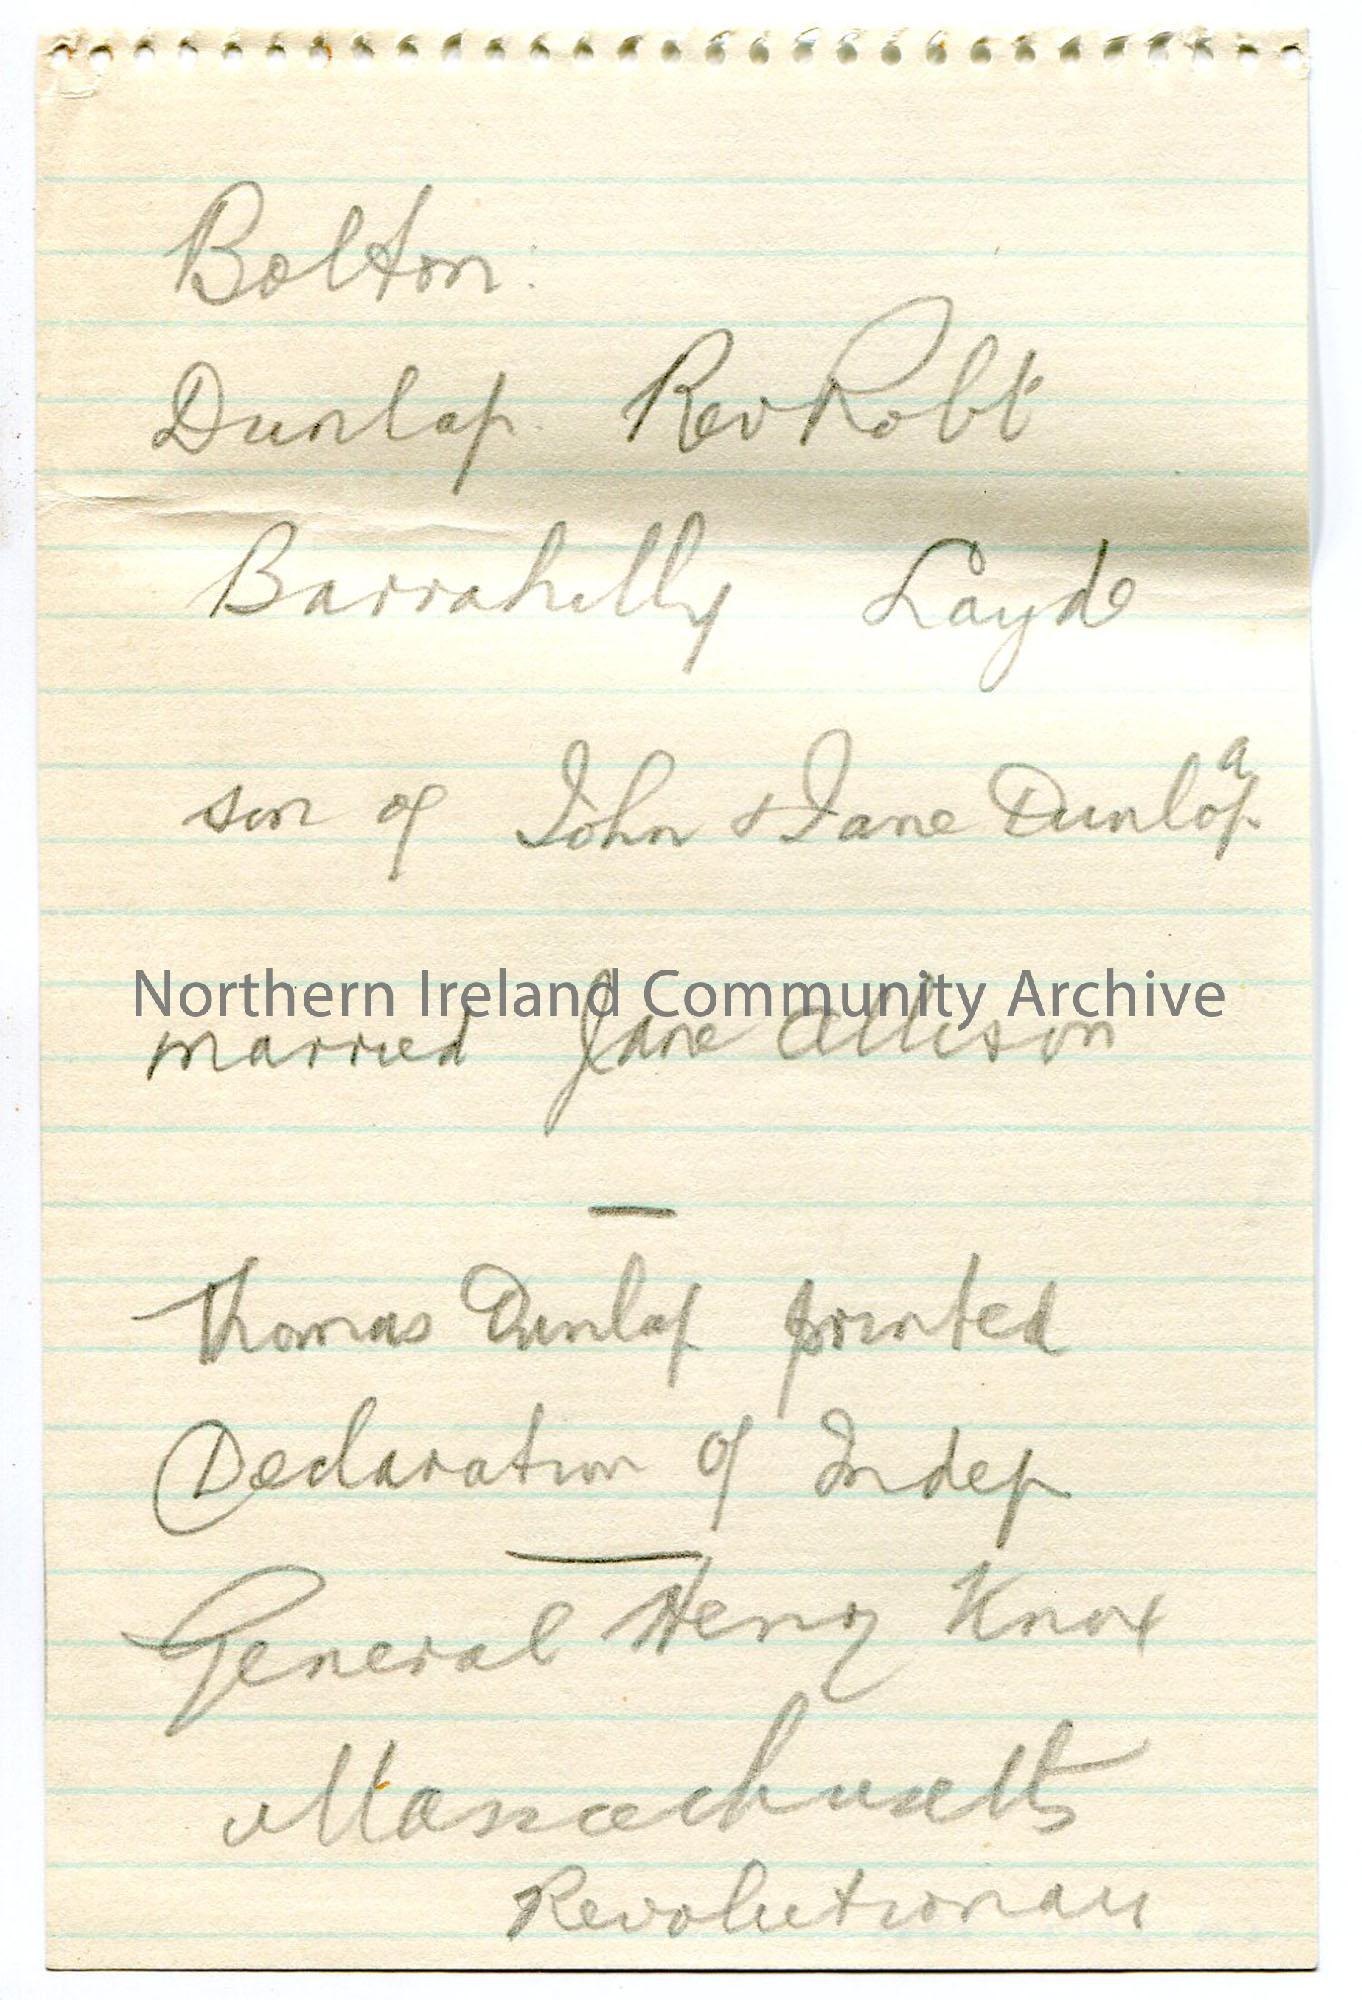 Bolton.
Dunlap. Rev Robt
Barrahilly Layde
son of John & Jane Dunlap
a
Northern Ireland Community Archive
married Jane Allison
Thomas Dunlap printed
Declaration of Indep
General Henry Knox
Massachusetts
Revolutionary